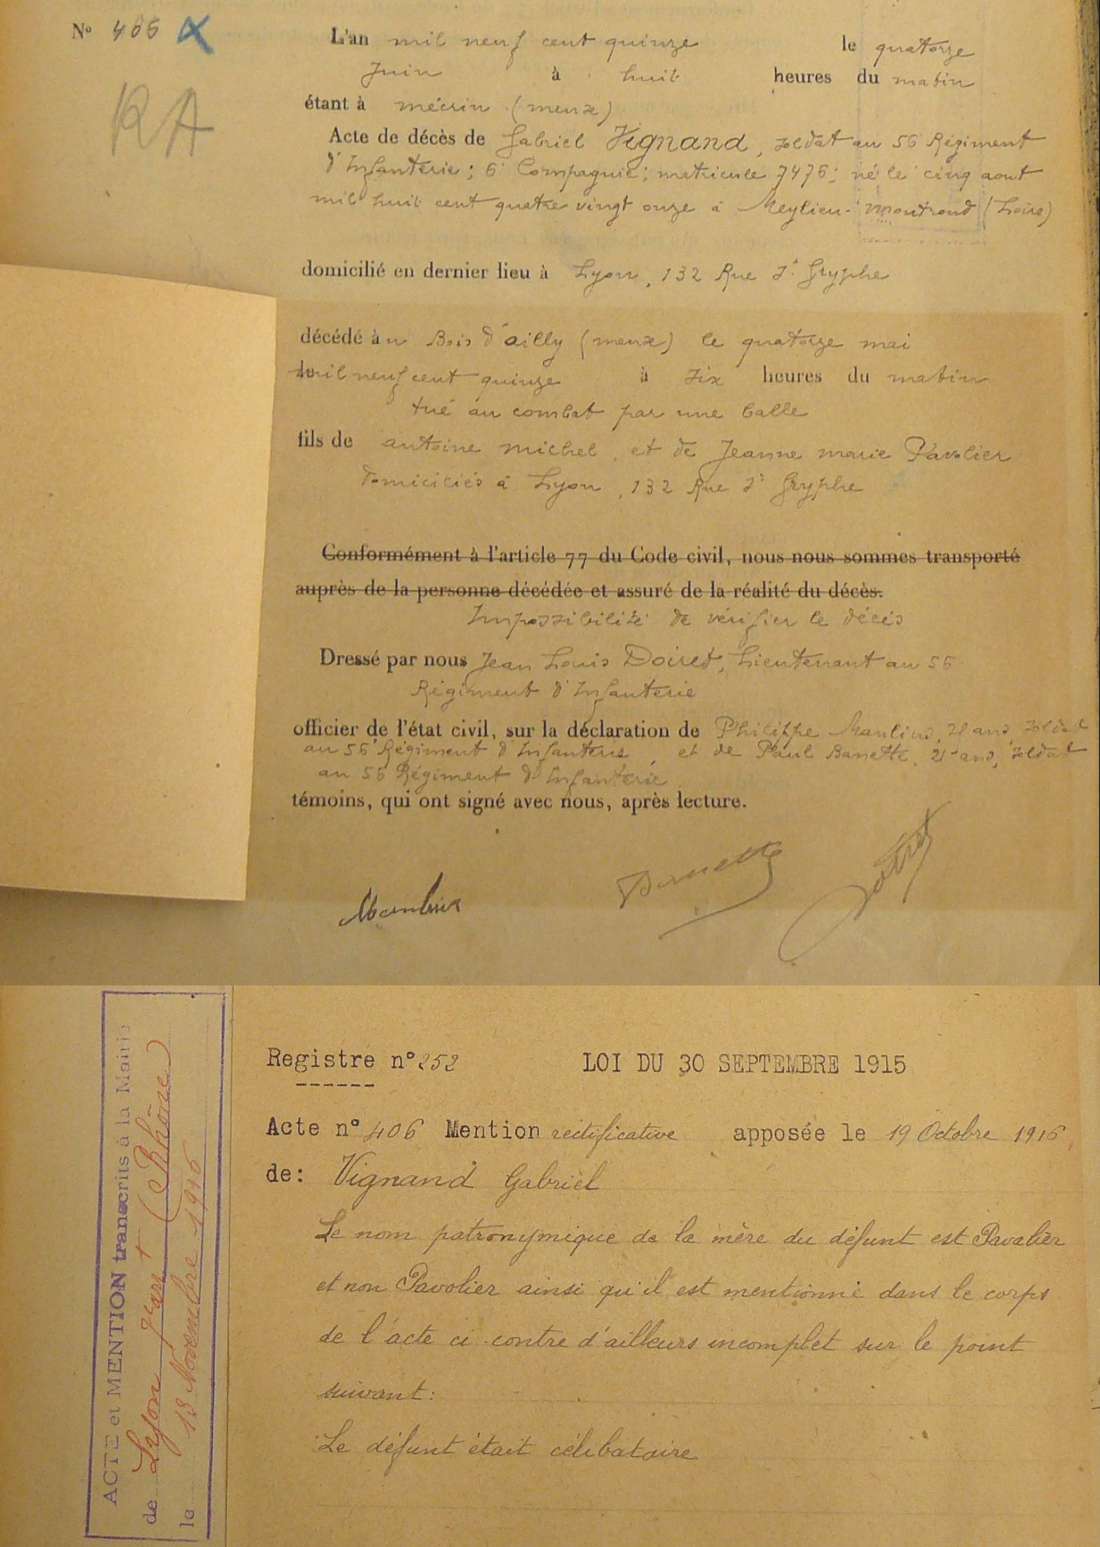 N° 406
RA
L'an mil neuf cent quinze le quatorze
Juin à huit heures du matin
étant à mécrin (meuse)
Acte de décès de Gabriel Vignand, soldat au 56 Régiment
d'Infanterie; 6 Compagnie; matricule 7476; né le cinq aout
mil huit cent quatre vingt onze à Meylieu-Montrond (Loire)
domicilié en dernier lieu à Lyon, 132 Rue St Gryphe
décédé au Bois d'ailly (meuse) le quatorze mai
mil neuf cent quinze à six heures du matin
tué au combat par une balle
fils de antoine michel et de Jeanne marie Pavolier
domiciliés à Lyon, 132 Rue St Gryphe
Conformément à l'article 77 du Code civil, nous nous sommes transporté
auprès de la personne décédée et assuré de la réalité du décès.
Impossibilité de vérifier le décès
Dressé par nous Jean Louis Doiret, Lieutenant au 56
Régiment d'Infanterie
officier de l'état civil, sur la déclaration de Philippe ans, soldat
au 56 Régiment d'Infanterie, et de Paul Banette, 21 ans, soldat
au 56 Régiment d'Infanterie
témoins, qui ont signé avec nous, après lecture.
Registre n° 252 LOI DU 30 SEPTEMBRE 1915
Acte n° 406 Mention rectificative apposée le 19 Octobre 1916
de: Vignand Gabriel
Le nom patronymique de la mère du défunt est Pavalier
et non Pavolier ainsi qu'il est mentionné dans le corps
de l'acte ci-contre d'ailleurs incomplet sur le point
suivant:
Le défunt était célibataire
ACTE et MENTION transcrits à la Mairie
de Lyon (Rhône)
le 13 Novembre 1916